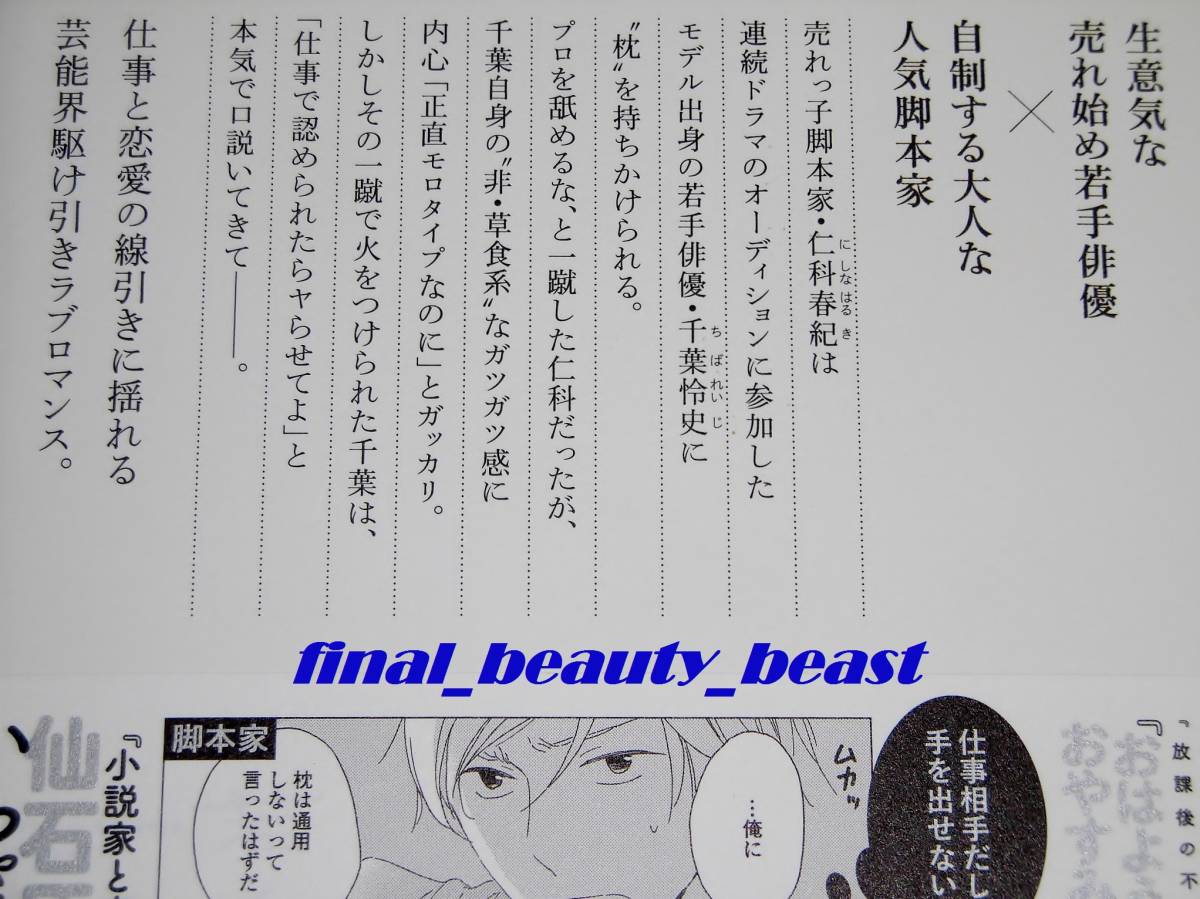 生意気な
売れ始め若手俳優
×
自制する大人な
人気脚本家
売れっ子脚本家・仁科春紀は
にしなはるき
連続ドラマのオーディションに参加した
モデル出身の若手俳優・千葉怜史に
ちばれいじ
〝枕〟を持ちかけられる。
プロを舐めるな、と一蹴した仁科だったが、
千葉自身の〝非・草食系〟なガツガツ感に
内心「正直モロタイプなのに」とガッカリ。
しかしその一蹴で火をつけられた千葉は、
「仕事で認められたらヤらせてよ」と
本気で口説いてきて――。
仕事と恋愛の線引きに揺れる
芸能界駆け引きラブロマンス。
final_beauty_beast
『放課後の不
『おはよう
おやすみ
仕事相手だし
手を出せない
ムカッ
…俺に
脚本家
枕は通用
しないって
言ったはずだ
『小説家と
仙石